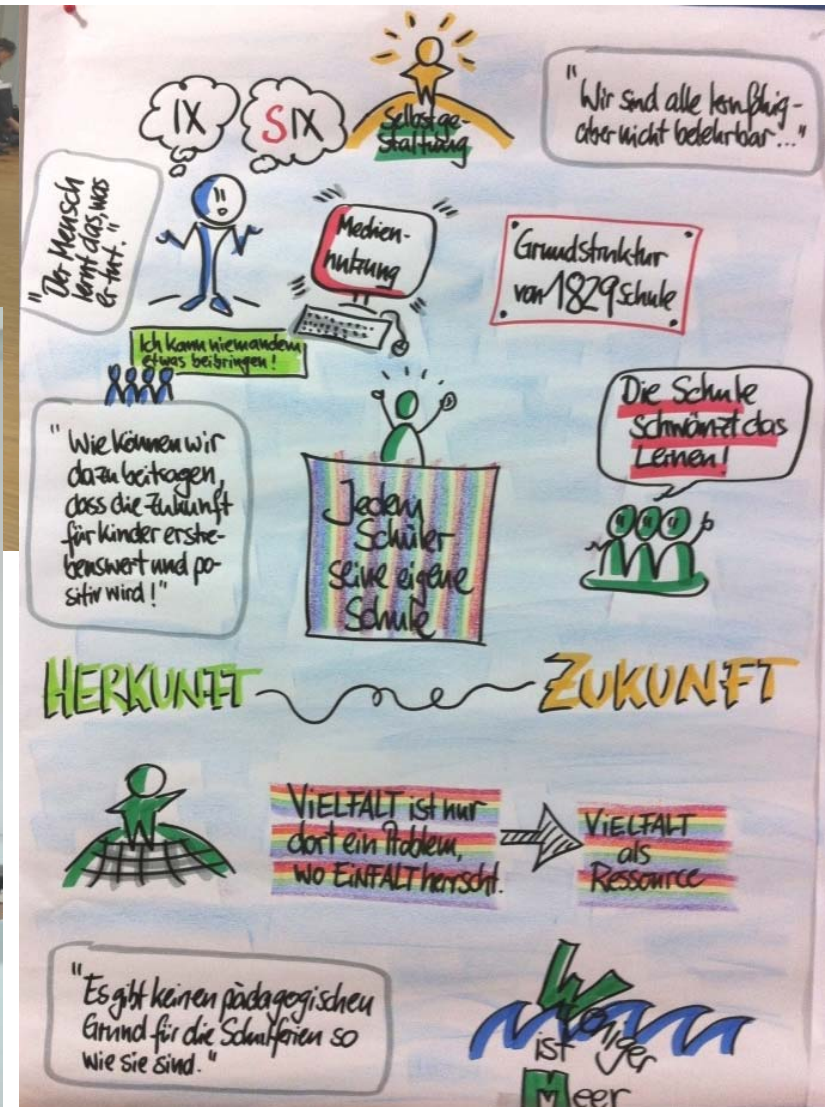 IX
SIX
Selbstge-
staltung
"Wir sind alle lernfähig -
aber nicht belehrbar..."
"Der Mensch
lernt das, was
er tut."
Medien-
nutzung
Grundstruktur
von 1829 Schule
Ich kann niemandem
etwas beibringen!
"Wie können wir
dazu beitragen,
dass die Zukunft
für Kinder erstre-
benswert und po-
sitiv wird!"
Jedem
Schüler
seine eigene
Schule
Die Schule
schwänzt das
Lernen!
HERKUNFT
ZUKUNFT
VIELFALT ist nur
dort ein Problem,
wo EINFALT herrscht.
VIELFALT
als
Ressource
"Es gibt keinen pädagogischen
Grund für die Schulferien so
wie sie sind."
Weniger
ist
Meer